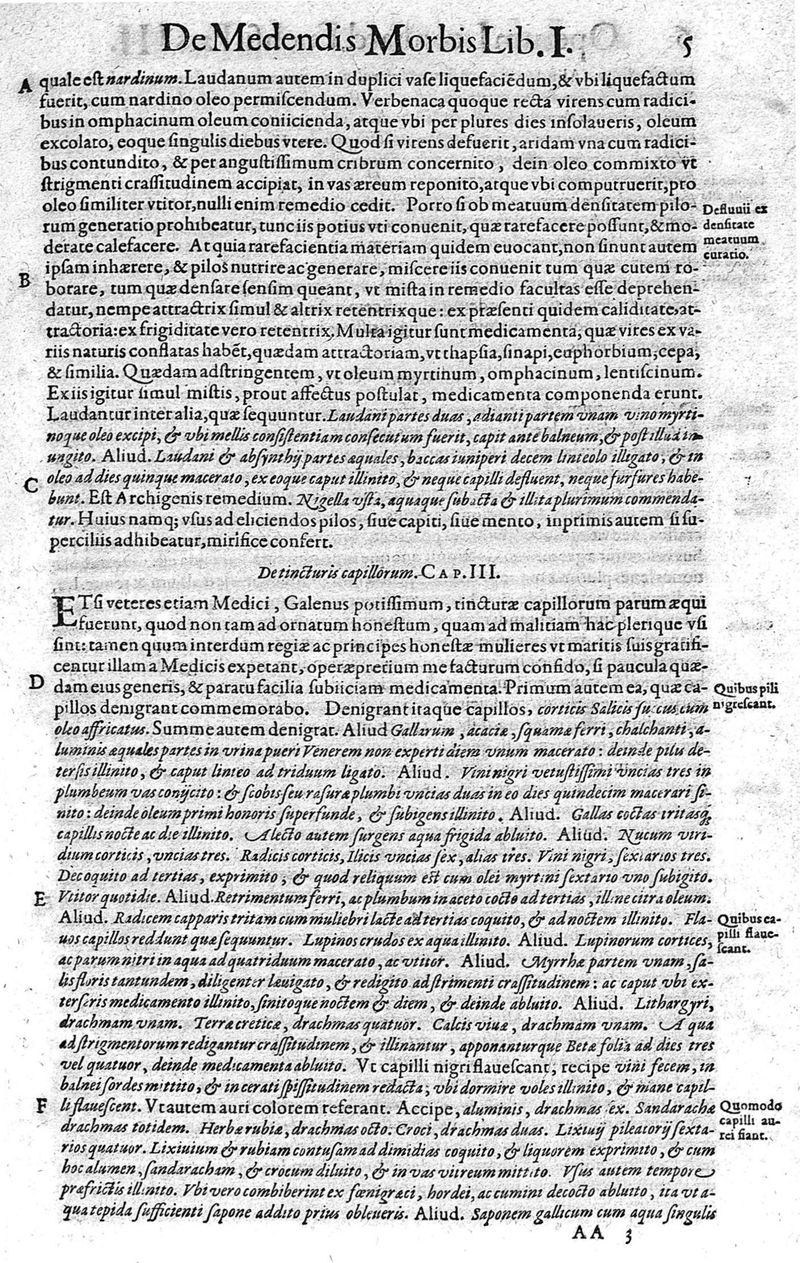 De Medendis Morbis Lib. I. 5
A quale est nardinum. Laudanum autem in duplici vase liquefaciēdum, & vbi liquefactum
fuerit, cum nardino oleo permiscendum. Verbenaca quoque recta virens cum radici-
bus in omphacinum oleum coniicienda, atque vbi per plures dies insolaueris, oleum
excolato, eoque singulis diebus vtere. Quod si virens defuerit, aridam vna cum radici-
bus contundito, & per angustissimum cribrum concernito, dein oleo commixto vt
strigmenti crassitudinem accipiat, in vas æreum reponito, atque vbi computruerit, pro
oleo similiter vtitor, nulli enim remedio cedit. Porro si ob meatuum densitatem pilo-
rum generatio prohibeatur, tunc iis potius vti conuenit, quæ rarefacere possunt, & mo-
derate calefacere. At quia rarefacientia materiam quidem euocant, non sinunt autem
Defluuii ex
densitate
meatuum
curatio.
ipsam inhærere, & pilos nutrire ac generare, miscere iis conuenit tum quæ cutem ro-
B borare, tum quæ densare sensim queant, vt mista in remedio facultas esse deprehen-
datur, nempe attractrix simul & altrix retentrixque: ex præsenti quidem caliditate, at-
tractoria: ex frigiditate vero retentrix. Multa igitur sunt medicamenta, quæ vires ex va-
riis naturis conflatas habēt, quædam attractoriam, vt thapsia, sinapi, euphorbium, cepa,
& similia. Quædam adstringentem, vt oleum myrtinum, omphacinum, lentiscinum.
Ex iis igitur simul mistis, prout affectus postulat, medicamenta componenda erunt.
Laudantur inter alia, quæ sequuntur. Laudani partes duas, adianti partem vnam vino myrti-
noque oleo excipi, & vbi mellis consistentiam consecutum fuerit, capit ante balneum, & post illud in-
ungito. Aliud. Laudani & absynthij partes æquales, baccas iuniperi decem linteolo illigato, & in
C oleo ad dies quinque macerato, ex eoque caput illinito, & neque capilli defluent, neque furfures habe-
bunt. Est Archigenis remedium. Nigella vsta, aquaque subacta & illita plurimum commenda-
tur. Huius namq; vsus ad eliciendos pilos, siue capiti, siue mento, inprimis autem si su-
perciliis adhibeatur, mirifice confert.
De tincturis capillorum. CAP. III.
ETsi veteres etiam Medici, Galenus potissimum, tincturæ capillorum parum æqui
fuerunt, quod non tam ad ornatum honestum, quam ad malitiam hac plerique vsi
sint: tamen quum interdum regiæ ac principes honestæ mulieres vt maritis suis gratifi-
centur illam a Medicis expetant, operæpretium me facturum confido, si paucula quæ-
D dam eius generis, & paratu facilia subiiciam medicamenta. Primum autem ea, quæ ca-
pillos denigrant commemorabo. Denigrant itaque capillos, corticis Salicis succus cum
Quibus pili
nigrescant.
oleo affricatus. Summe autem denigrat. Aliud Gallarum, acaciæ, squamæ ferri, chalchanti, a-
luminis æquales partes in vrina pueri Venerem non experti diem vnum macerato: deinde pilis de-
tersis illinito, & caput linteo ad triduum ligato. Aliud. Vini nigri vetustissimi vncias tres in
plumbeum vas conijcito: & scobis seu rasuræ plumbi vncias duas in eo dies quindecim macerari si-
nito: deinde oleum primi honoris superfunde, & subigens illinito. Aliud. Gallas coctas tritasq́
capillis nocte ac die illinito. A lecto autem surgens aqua frigida abluito. Aliud. Nucum viri-
dium corticis, vncias tres. Radicis corticis, Ilicis vncias sex, alias tres. Vini nigri, sextarios tres.
Decoquito ad tertias, exprimito, & quod reliquum est cum olei myrtini sextario vno subigito.
E Vtitor quotidie. Aliud. Retrimentum ferri, ac plumbum in aceto cocto ad tertias, illine citra oleum.
Aliud. Radicem capparis tritam cum muliebri lacte ad tertias coquito, & ad noctem illinito. Fla-
uos capillos reddunt quæ sequuntur. Lupinos crudos ex aqua illinito. Aliud. Lupinorum cortices,
Quibus ca-
pilli flaue-
scant.
ac parum nitri in aqua ad quatriduum macerato, ac vtitor. Aliud. Myrrhæ partem vnam, sa-
lis floris tantundem, diligenter læuigato, & redigito ad strimenti crassitudinem: ac caput vbi ex-
terseris medicamento illinito, sinitoque noctem & diem, & deinde abluito. Aliud. Lithargyri,
drachmam vnam. Terræ creticæ, drachmas quatuor. Calcis viuæ, drachmam vnam. A qua
ad strigmentorum redigantur crassitudinem, & illinantur, apponanturque Betæ folia ad dies tres
vel quatuor, deinde medicamenta abluito. Vt capilli nigri flauescant, recipe vini fecem, in
balnei sordes mittito, & in cerati spissitudinem redacta, vbi dormire voles illinito, & mane capil-
F li flauescent. Vt autem auri colorem referant. Accipe, aluminis, drachmas sex. Sandarachæ
drachmas totidem. Herbæ rubiæ, drachmas octo. Croci, drachmas duas. Lixiuij pileatorij sexta-
rios quatuor. Lixiuium & rubiam contusam ad dimidias coquito, & liquorem exprimito, & cum
Quomodo
capilli au-
rei fiant.
hoc alumen, sandaracham, & crocum diluito, & in vas vitreum mittito. Vsus autem tempore
præfrictis illinito. Vbi vero combiberint ex fœnigræci, hordei, ac cumini decocto abluito, ita vt a-
qua tepida sufficienti sapone addito prius obleueris. Aliud. Saponem gallicum cum aqua singulis
AA 3